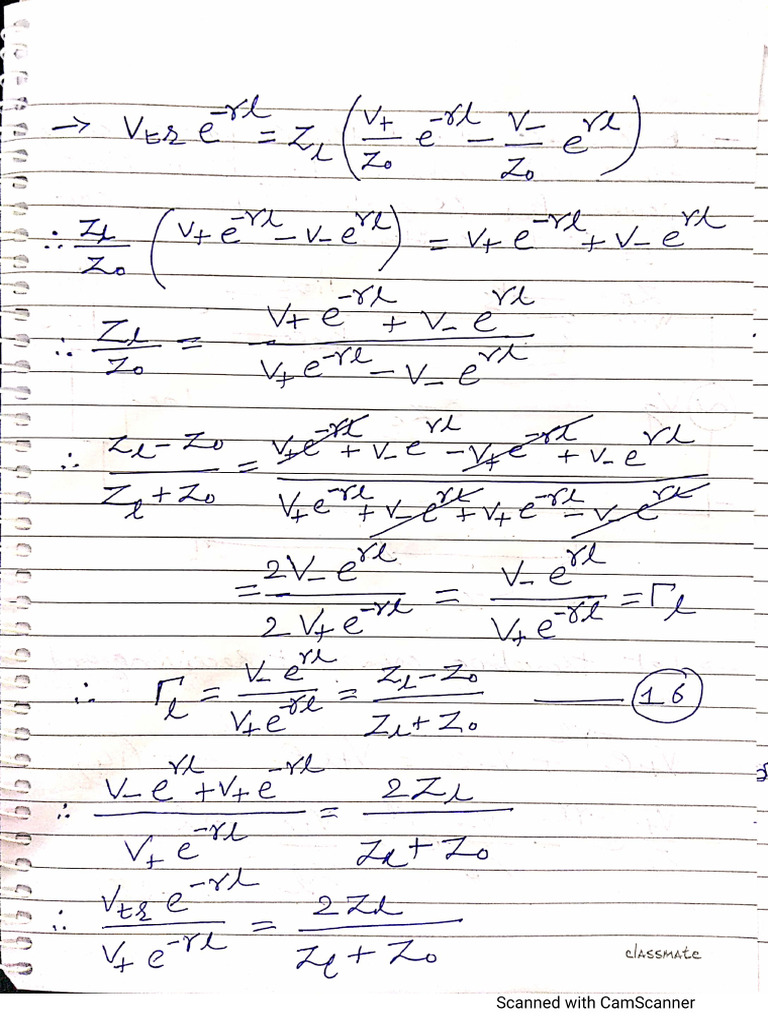 → V_tr e^{-γl} = Z_l (V_+/Z_0 e^{-γl} - V_-/Z_0 e^{γl})
∴ Z_l/Z_0 (V_+ e^{-γl} - V_- e^{γl}) = V_+ e^{-γl} + V_- e^{γl}
∴ Z_l/Z_0 = (V_+ e^{-γl} + V_- e^{γl})/(V_+ e^{-γl} - V_- e^{γl})
∴ (Z_l - Z_0)/(Z_l + Z_0) = (V_+ e^{-γl} + V_- e^{γl} - V_+ e^{-γl} + V_- e^{γl})/(V_+ e^{-γl} + V_- e^{γl} + V_+ e^{-γl} - V_- e^{γl})
= 2V_- e^{γl}/2V_+ e^{-γl} = V_- e^{γl}/V_+ e^{-γl} = Γ_l
∴ Γ_l = V_- e^{γl}/V_+ e^{-γl} = (Z_l - Z_0)/(Z_l + Z_0) —— (16)
∴ (V_- e^{γl} + V_+ e^{-γl})/V_+ e^{-γl} = 2Z_l/(Z_l + Z_0)
∴ V_tr e^{-γl}/V_+ e^{-γl} = 2Z_l/(Z_l + Z_0)
classmate
Scanned with CamScanner